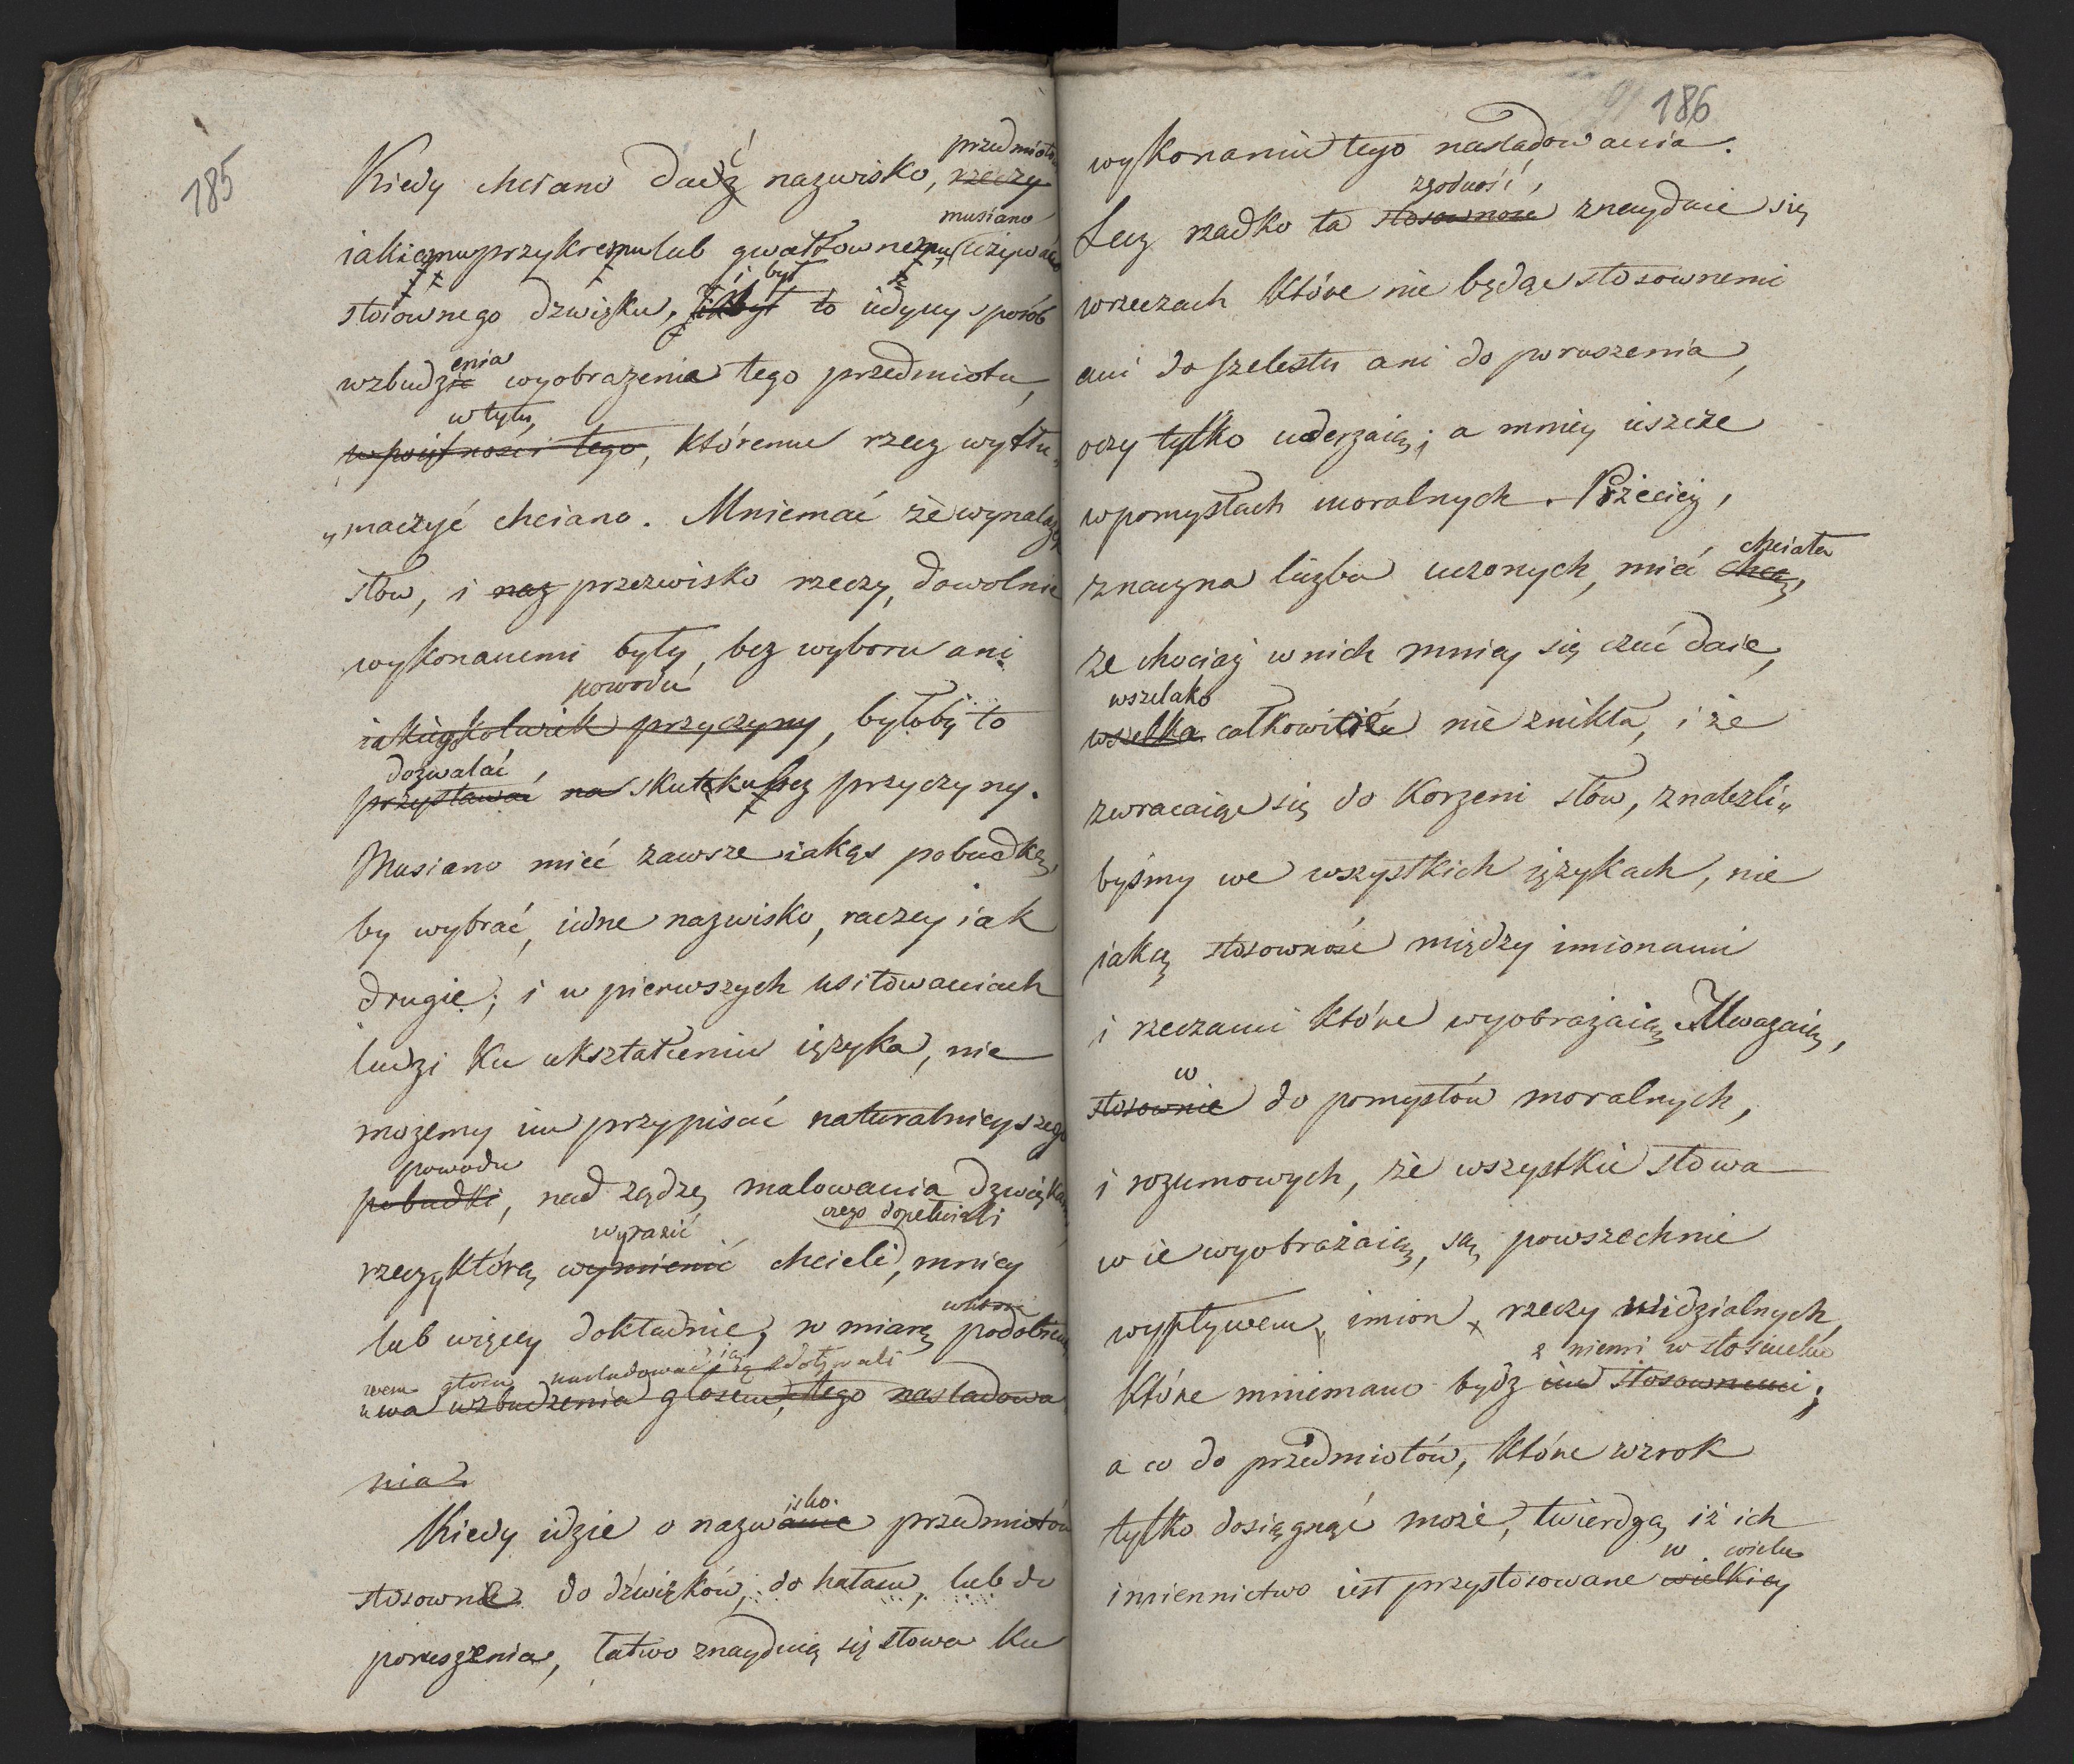 185
Kiedy chciano dadź ć nazwisko, rzeczy przedmioto
iakiemu przykremu lub gwałtownemu, musiano używać
stosownego dźwięku, i był to iedyny sposób
wzbudzić enia wyobrażenia tego przedmiotu,
w tym, któremu rzecz wytłu„
„maczyć chciano. Mniemać że wynalazki
słów, i naz przezwisko rzeczy, dowolnie
wykonanemi były, bez wyboru ani
iakieykolwiek przyczyny powodu, byłoby to
przystawać dozwalać na skutek bez przyczyny.
Musiano mieć zawsze iakąs pobudkę,
by wybrać, iedne nazwisko, raczey iak
drugie; i w pierwszych usiłowaniach
ludzi ku ukształceniu ięzyka, nie
możemy im przypisać naturalnieyszego
pobudki powodu, nad żądzę malowania dźwiękam
rzeczy którą wymienić wyrazić chcieli, czego dopełniali mniey
lub więcey dokładnie, w miarę podobień
wzbudzenia głosem, tego nasladowa
nia.
Kiedy idzie o nazwanie isko przedmiotów
stosownie do dźwięków, do hałasu, lub do
poruszenia, łatwo znaydują się słowa ku
186
wykonaniu tego nasladowania.
Lecz rzadko ta stosownosc zgodność, znayduie się
w rzeczach które nie będąc stosownemi
ani do szelestu ani do poruszenia,
oczy tylko uderzaią; a mniey ieszcze
w pomysłach moralnych. Przecież,
znaczna liczba uczonych, mieć chcą, chciała
że chociaż w nich mniey się czuć daie,
wszelka wszelako całkowicie nie znikła, i że
zwracaiąc się do korzeni słów, znaleźli„
byśmy we wszystkich ięzykach, nie
iaką stosowność między imionami
i rzeczami które wyobrażaią. Uważaią,
stosownie w do pomysłów moralnych,
i rozumowych, że wszystkie słowa
w ie wyobrażaią, są powszechnie
wypływem imion rzeczy widzialnych,
które mniemano bydź im stosownemi; z niemi w stosunku
a co do przedmiotów, które wzrok
tylko dosięgnąć może, twierdzą iż ich
imiennictwo iest przystosowane wielkiey w wielu